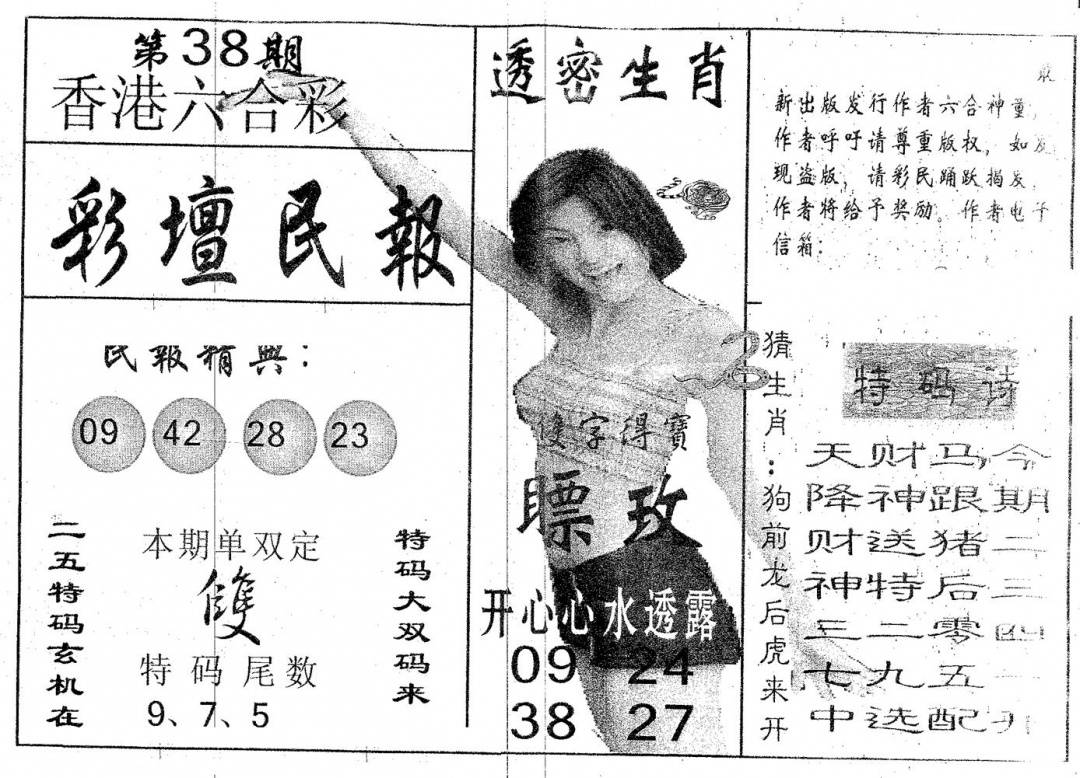 第38期
香港六合彩
彩壇民報
民報精典：
09 42 28 23
二五特码玄机在
本期单双定
雙
特码尾数
9、7、5
特码大双码来
透密生肖
雙字得寶
瞟 玫
开心心水透露
09 24
38 27
最
新出版发行作者六合神童，
作者呼吁请尊重版权，如发
现盗版，请彩民踊跃揭发，
作者将给予奖励。作者电子
信箱：
猜生肖：狗前龙后虎来开
特码诗
今期二三四一开
马跟猪后零五配
财神送特二九选
天降财神三七中